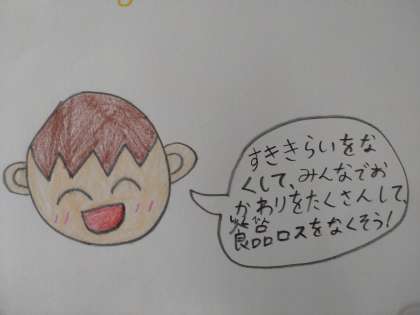 すききらいをな
くして、みんなでお
かわりをたくさんして、
食品ロスをなくそう!